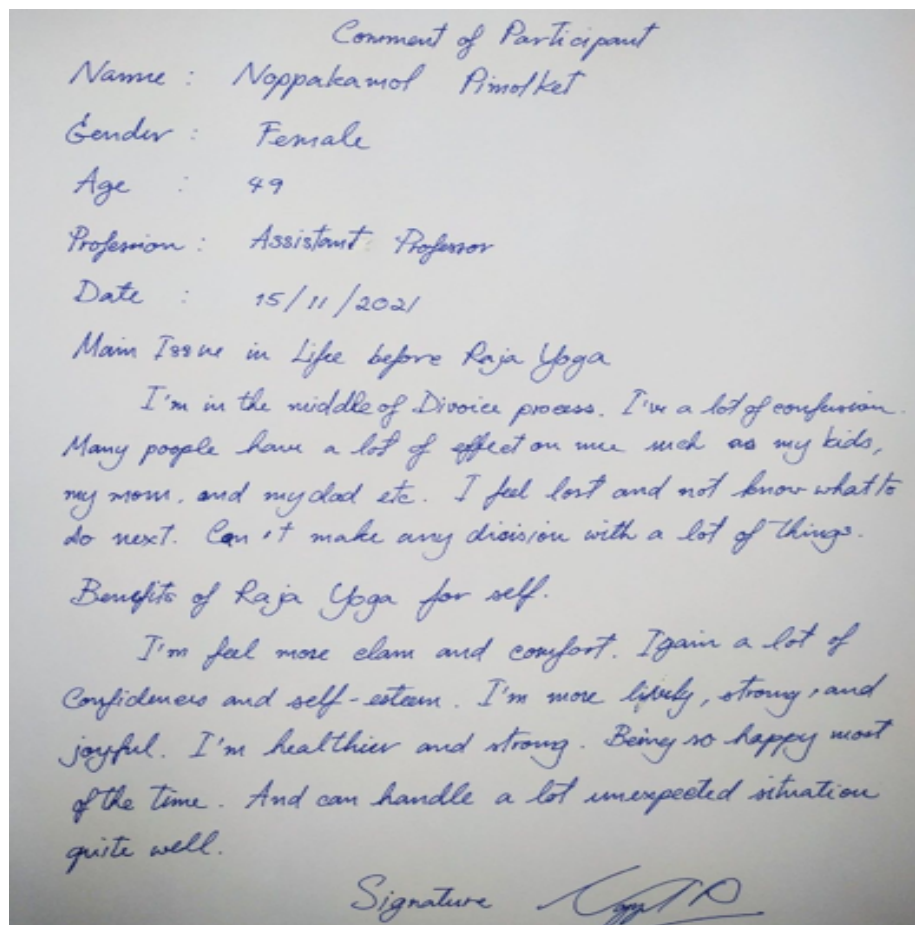 Comment of Participant
Name : Noppakamol Pimolket
Gender : Female
Age : 49
Profession : Assistant Professor
Date : 15/11/2021
Main Issue in Life before Raja Yoga
I'm in the middle of Divoice process. I've a lot of confusion.
Many poople have a lot of effect on me such as my kids,
my mom, and my dad etc. I feel lost and not know what to
do next. Can't make any disision with a lot of things.
Benefits of Raja Yoga for self.
I'm feel more clam and comfort. I gain a lot of
Confidences and self-esteem. I'm more lively, strong, and
joyful. I'm healthier and strong. Being so happy most
of the time. And can handle a lot unexpected situation
quite well.
Signature